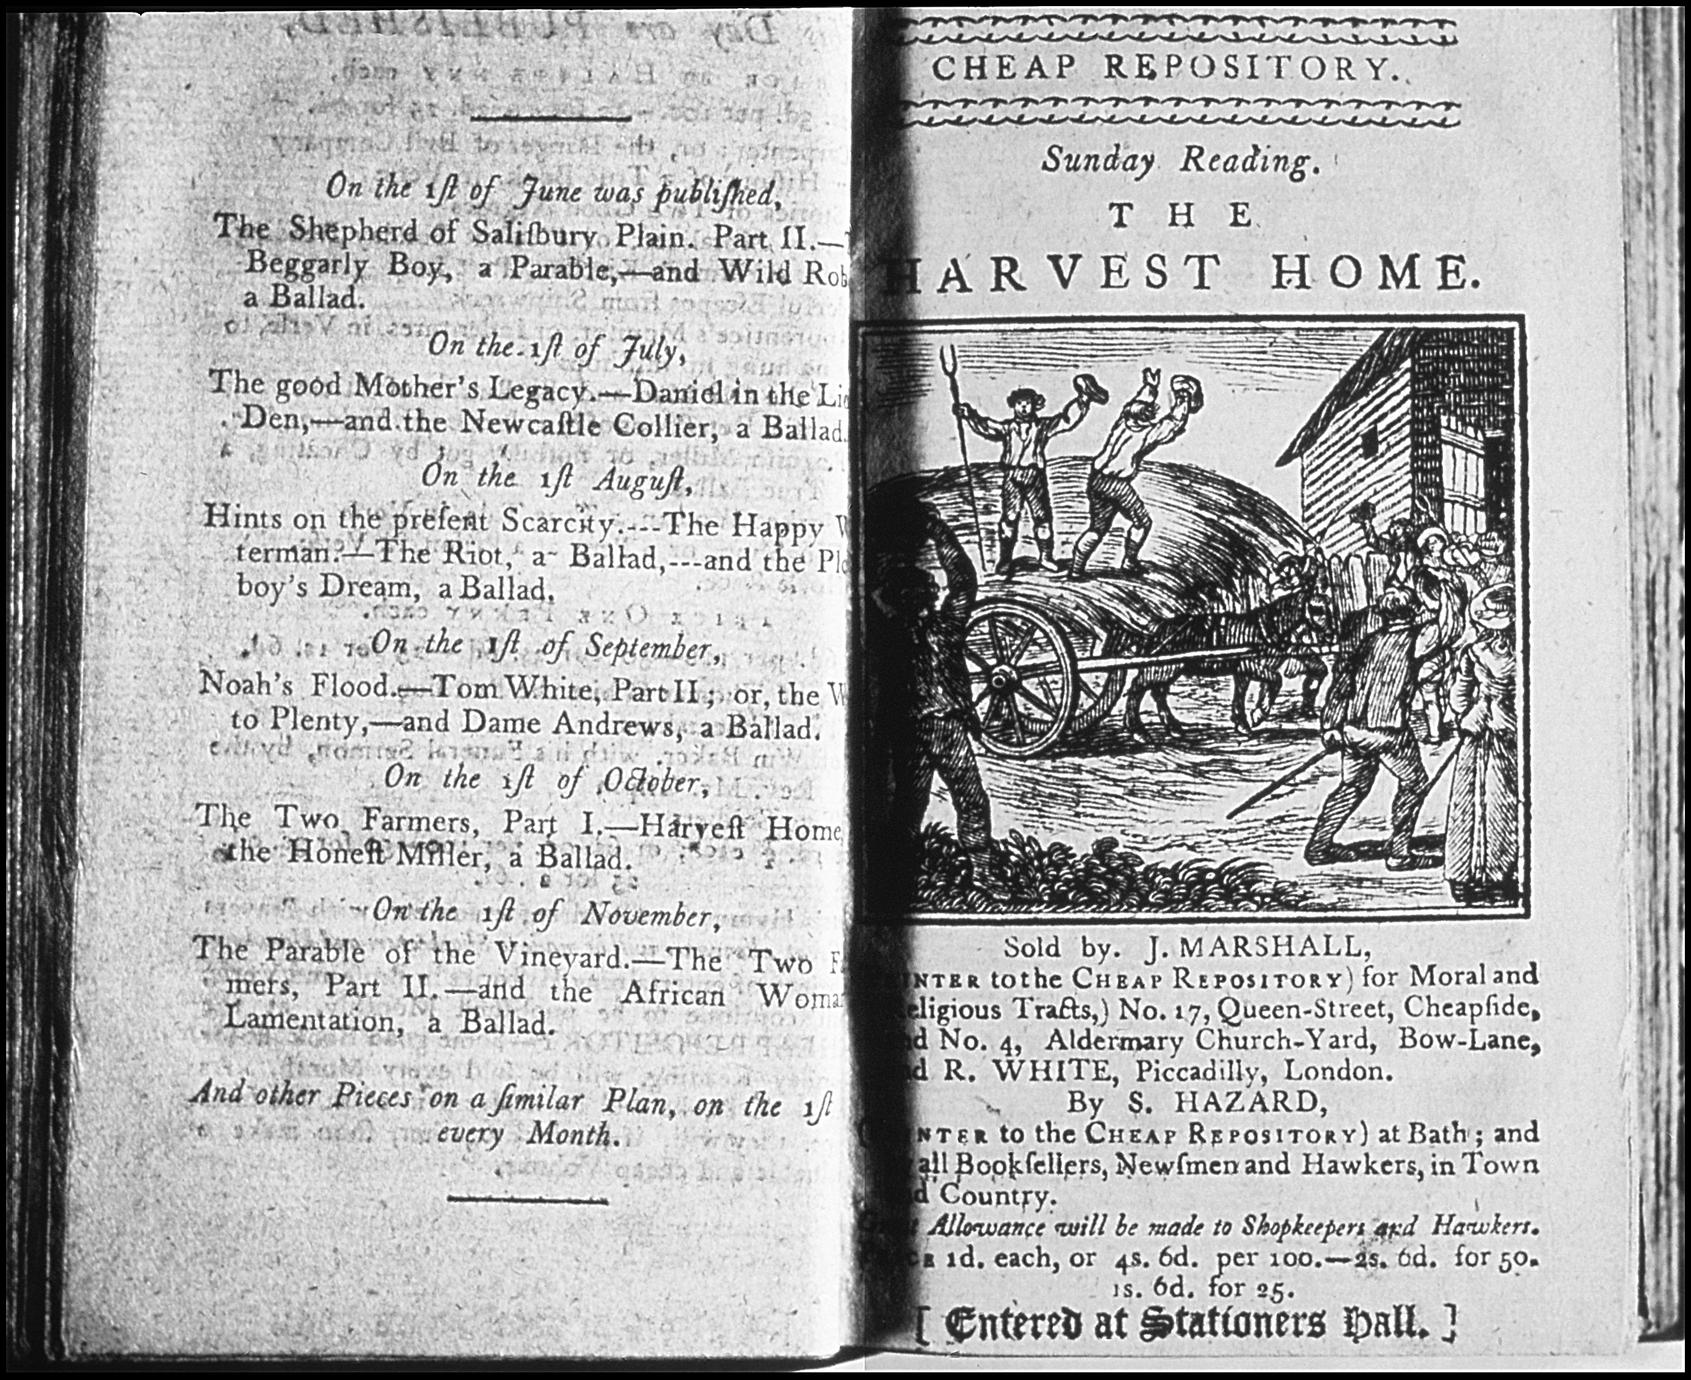 On the 1ſt of June was publiſhed,
The Shepherd of Saliſbury Plain. Part II.—
Beggarly Boy, a Parable,—and Wild Rob
a Ballad.
On the 1ſt of July,
The good Mother's Legacy.—Daniel in the Li
Den,—and the Newcaſtle Collier, a Ballad.
On the 1ſt Auguſt,
Hints on the preſent Scarcity.---The Happy W
terman.—The Riot, a Ballad,---and the Plo
boy's Dream, a Ballad.
On the 1ſt of September,
Noah's Flood.—Tom White, Part II; or, the W
to Plenty,—and Dame Andrews, a Ballad.
On the 1ſt of October,
The Two Farmers, Part I.—Harveſt Home
the Honeſt Miller, a Ballad.
On the 1ſt of November,
The Parable of the Vineyard.—The Two F
mers, Part II.—and the African Woma
Lamentation, a Ballad.
And other Pieces on a ſimilar Plan, on the 1ſt
every Month.
CHEAP REPOSITORY.
Sunday Reading.
THE
HARVEST HOME.
Sold by J. MARSHALL,
NTER to the CHEAP REPOSITORY) for Moral and
eligious Tracts,) No. 17, Queen-Street, Cheapſide,
d No. 4, Aldermary Church-Yard, Bow-Lane,
d R. WHITE, Piccadilly, London.
By S. HAZARD,
NTER to the CHEAP REPOSITORY) at Bath; and
all Bookſellers, Newſmen and Hawkers, in Town
d Country.
Allowance will be made to Shopkeepers and Hawkers.
1d. each, or 4s. 6d. per 100.—2s. 6d. for 50.
1s. 6d. for 25.
[ Entered at Stationers Hall. ]